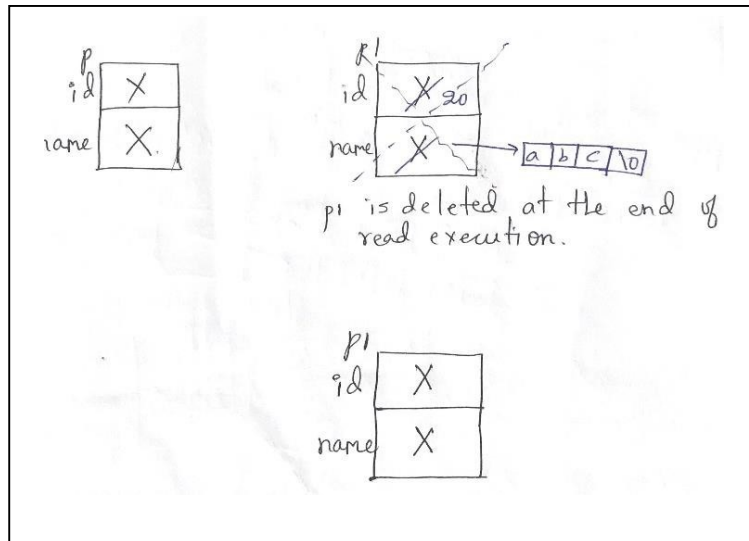 p
id X
name X
p1
id X 20
name X a b c \0
p1 is deleted at the end of
read execution.
p1
id X
name X